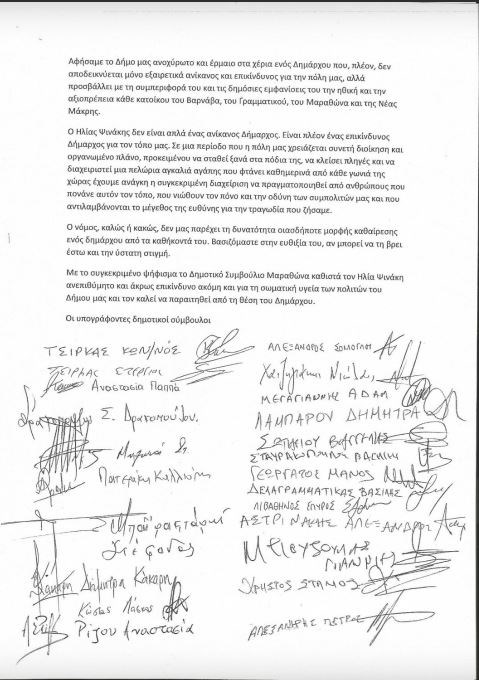 Αφήσαμε το Δήμο μας ανοχύρωτο και έρμαιο στα χέρια ενός Δημάρχου που, πλέον, δεν
αποδεικνύεται μόνο εξαιρετικά ανίκανος και επικίνδυνος για την πόλη μας, αλλά
προσβάλλει με τη συμπεριφορά του και τις δημόσιες εμφανίσεις του την ηθική και την
αξιοπρέπεια κάθε κατοίκου του Βαρνάβα, του Γραμματικού, του Μαραθώνα και της Νέας
Μάκρης.
Ο Ηλίας Ψινάκης δεν είναι απλά ένας ανίκανος Δήμαρχος. Είναι πλέον ένας επικίνδυνος
Δήμαρχος για τον τόπο μας. Σε μια περίοδο που η πόλη μας χρειάζεται συνετή διοίκηση και
οργανωμένο πλάνο, προκειμένου να σταθεί ξανά στα πόδια της, να κλείσει πληγές και να
διαχειριστεί μια πελώρια αγκαλιά αγάπης που φτάνει καθημερινά από κάθε γωνιά της
χώρας έχουμε ανάγκη η συγκεκριμένη διαχείριση να πραγματοποιηθεί από ανθρώπους που
πονάνε αυτόν τον τόπο, που νιώθουν τον πόνο και την οδύνη των συμπολιτών μας και που
αντιλαμβάνονται το μέγεθος της ευθύνης για την τραγωδία που ζήσαμε.
Ο νόμος, καλώς ή κακώς, δεν μας παρέχει τη δυνατότητα οιασδήποτε μορφής καθαίρεσης
ενός δημάρχου από τα καθήκοντά του. Βασιζόμαστε στην ευθιξία του, αν μπορεί να τη βρει
έστω και την ύστατη στιγμή.
Με το συγκεκριμένο ψήφισμα το Δημοτικό Συμβούλιο Μαραθώνα καθιστά τον Ηλία Ψινάκη
ανεπιθύμητο και άκρως επικίνδυνο ακόμη και για τη σωματική υγεία των πολιτών του
Δήμου μας και τον καλεί να παραιτηθεί από τη θέση του Δημάρχου.
Οι υπογράφοντες δημοτικοί σύμβουλοι
ΤΣΙΡΚΑΣ ΚΩΝ/ΝΟΣ
ΑΛΕΞΑΝΔΡΟΣ
ΤΣΙΡΚΑΣ ΣΤΕΡΓΙΟΣ
Αναστασία Παππά
ΜΕΓΑΓΙΑΝΝΗΣ ΑΔΑΜ
Σ. Δρακοπούλου
ΛΑΜΠΑΡΟΥ ΔΗΜΗΤΡΑ
ΣΩΤΗΡΙΟΥ ΒΑΓΓΕΛΗΣ
ΓΕΩΡΓΑΤΟΣ ΜΑΝΟΣ
Καλλιόπη
ΔΕΛΑΓΡΑΜΜΑΤΙΚΑΣ ΒΑΣΙΛΗΣ
ΛΙΒΑΘΗΝΟΣ ΣΠΥΡΟΣ
ΑΛΕΞΑΝΔΡΟΣ
Στέφανος
ΓΙΑΝΝΗΣ
Δήμητρα
ΧΡΗΣΤΟΣ ΣΤΑΜΟΣ
Κώστας
Ρίζου Αναστασία
ΠΕΤΡΟΣ